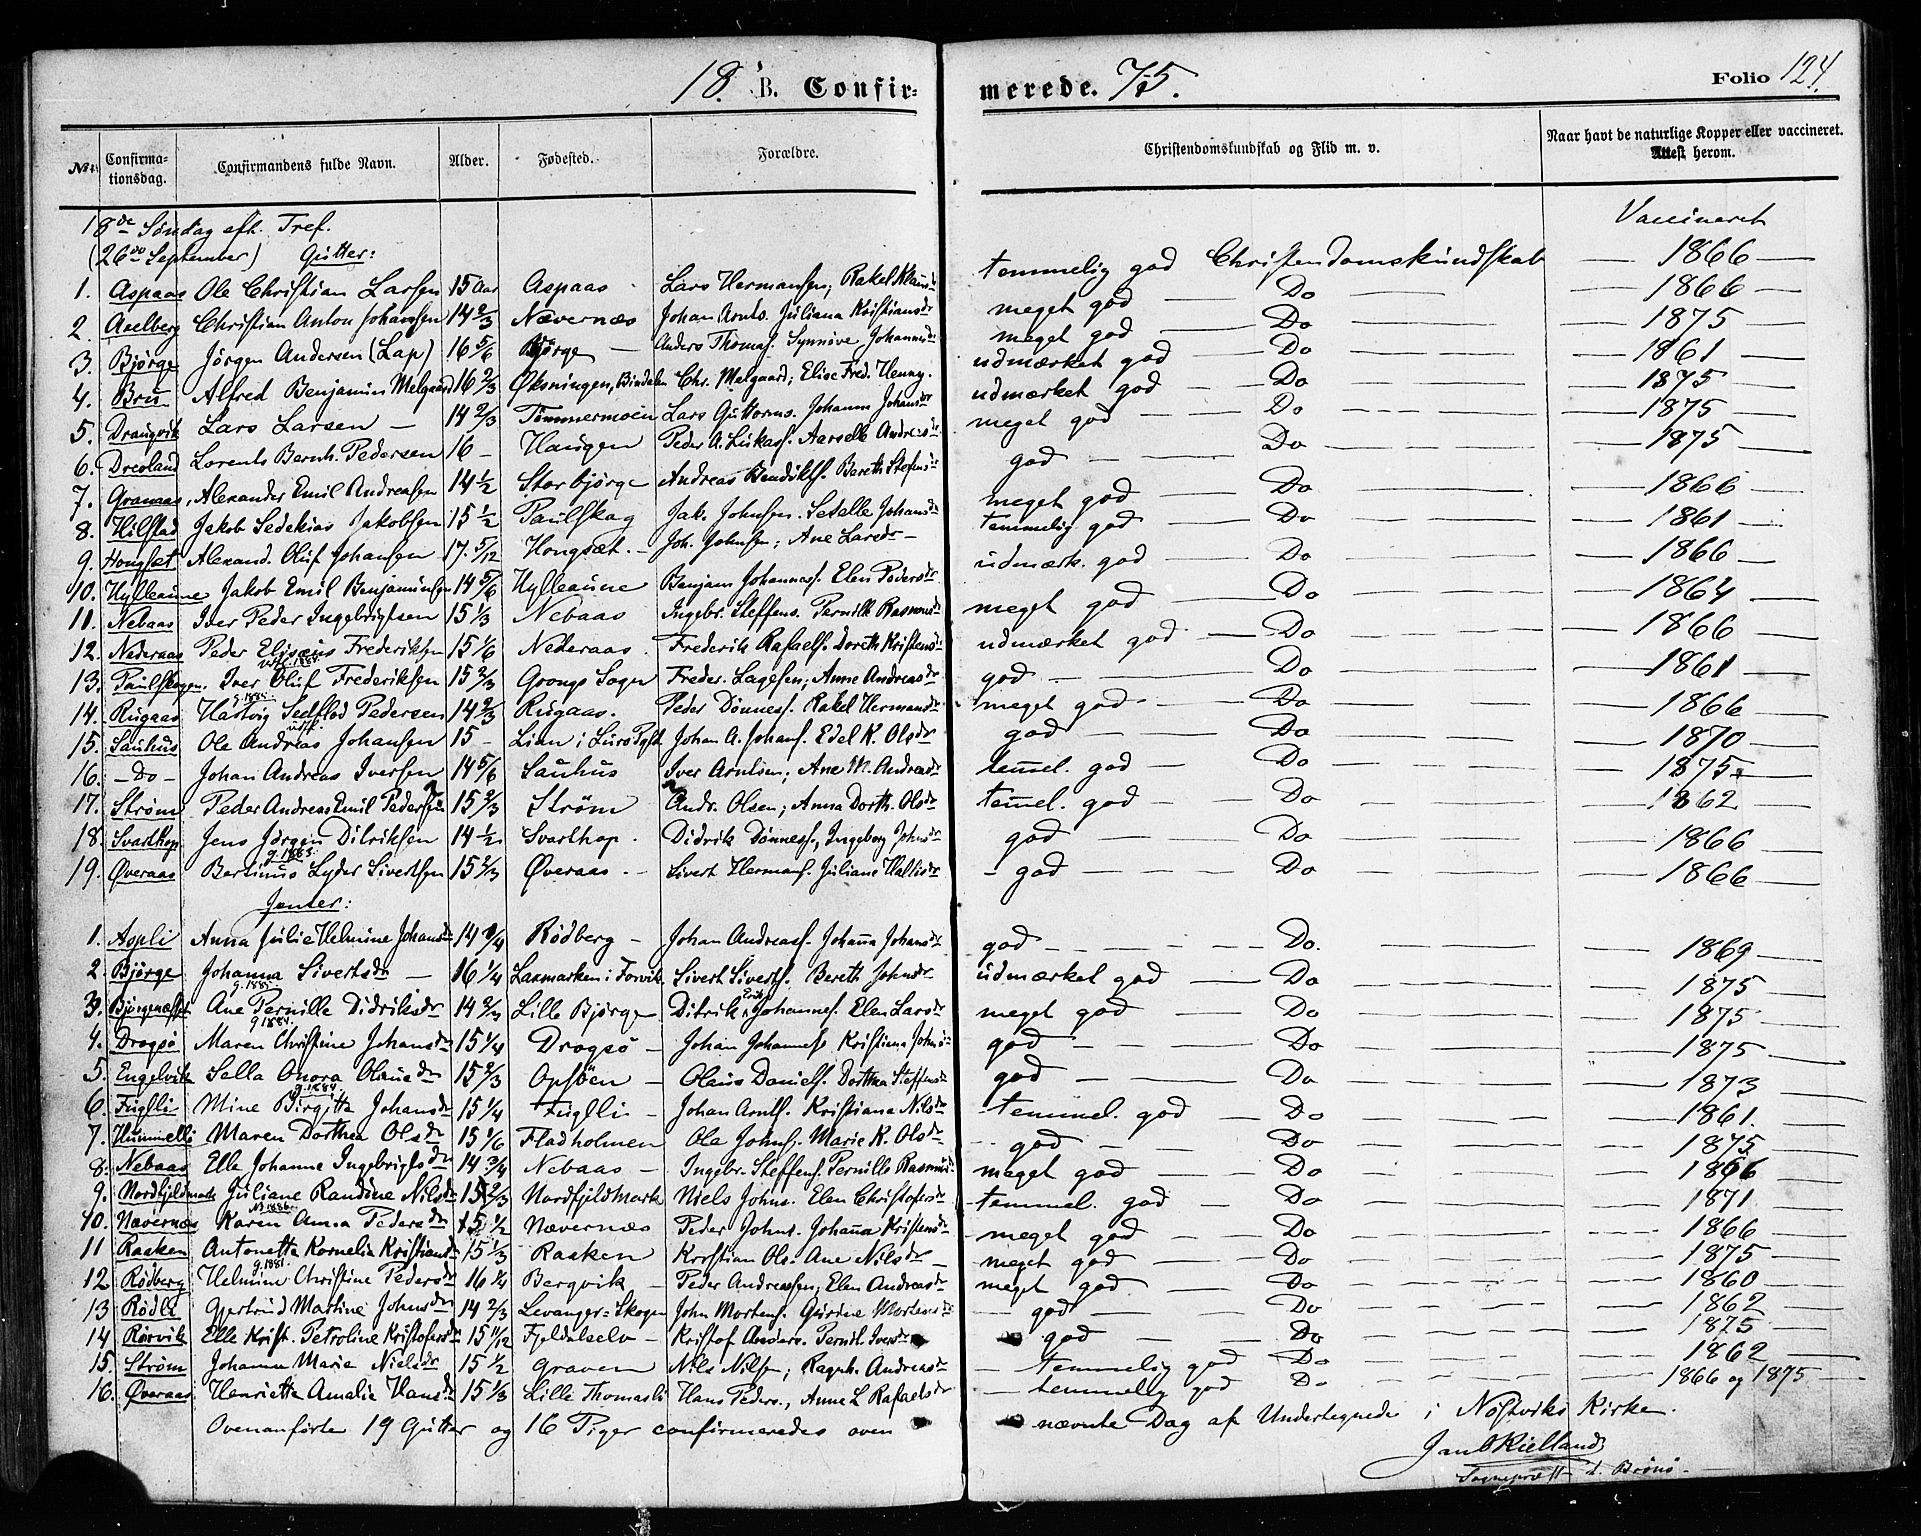 18. B. Confirmerede. 75. Folio 124.
No. Confirmationsdag. Confirmandens fulde Navn. Alder. Fødested. Forældre. Christendomskundskab og Flid m. v. Naar havt de naturlige Kopper eller vaccineret. Attest herom.
18de Søndag eft. Tref. Vaccineret
(26de September) Gutter:
1. Aspaas Ole Christian Larsen 15 Aar Aspaas Lars Hermansen; Rakel Klausdr temmelig god Christendomskundskab — 1866 —
2. Axelberg Christian Anton Johansen 14 2/3 Nævernæs Johan Arnts. Juliana Kristiansdr meget god — Do — 1866 —
3. Bjørge Jørgen Andersen (Lap) 16 5/6 Bjørge — Anders Thomas. Synnøve Johannesdr meget god — Do — 1875 —
4. Bru Alfred Benjamin Melgaard 16 2/3 Øksningen, Bindalen Chr. Melgaard; Elise Fred. Henny. udmærket god — Do — 1861 —
5. Drangvik Lars Larsen — 14 2/3 Tømmermoen Lars Guttorms. Johanna Johansdr udmærket god — Do — 1875 —
6. Drevland Lorents Bernh. Pedersen 16 — Haugen Peder A. Lukass. Aarselle Andreasdr meget god — Do — 1875 —
7. Granaas, Alexander Emil Andreasen 14 1/2 Storbjørge Andreas Bendiktss. Bereth Stefensdr god — Do — 1875 —
8. Hilstad Jakob Sedekias Jakobsen 15 1/2 Paulskag Jak. Johnsen. Setelle Johansdr meget god — Do — 1866 —
9. Hongset Alexand. Oluf Johansen 17 5/12 Hongsæt. — Joh. Johnsen; Ane Larsdr — temmelig god — Do — 1861 —
10. Hylleaune Jakob Emil Benjaminsen 14 5/6 Hylleaune Benjam Johannass. Elen Pedersdr udmærk. god — Do — 1866 —
11. Nebaas Iver Peder Ingebrigtsen 15 1/3 Nebaas Ingebr. Steffens. Pernille Rasmusdr meget god — Do — 1864 —
12. Nederaas Peder Elisæus Frederiksen 15 1/6 Nederaas. Frederik Rafaels. Doreth Kristensdr udmærket god — Do — 1866 —
13. Paulskogen. Iver Oluf Frederiksen 15 2/3 Grongs Sogn Freder. Lagesen; Anne Andreasdr god — Do — 1861 —
14. Rugaas Hartvig Sedflod Pedersen 14 2/3 Rugaas. Peder Dønness. Rakel Hermansdr meget god — Do — 1866
15. Sauhus Ole Andreas Johansen 15 — Lian i Lurø Pgld Johan A. Johans. Edel K. Olsdr god — Do — 1870 —
16. —Do— Johan Andreas Iversen 14 5/6 Sauhus Iver Arntsen; Ane M. Andreasdr temmel. god — Do — 1875
17. Strøm Peder Andreas Emil Pedersen 15 2/3 Strøm Andr. Olsen; Anna Dorth. Olsdr temmel. god — Do — 1862
18. Svarthop Jens Jørgen Ditriksen 14 1/2 Svarthop. Didrik Dønness., Ingeborg Johnsdr god — Do — 1866 —
g. 1883.
19. Øveraas Bertinus Lyder Sivertsen 15 2/3 Øveraas. — Sivert Hermans. Juliane Hallisdr — god — Do — 1866 —
Jenter:
1. Aopli Anna Julie Helmine Johansdr 14 3/4 Rødberg — Johan Andreass. Johanna Johansdr god — Do. — 1869 —
2. Bjørge Johanna Sivertsdr — 16 1/4 Laxmarken i Forvik. Sivert Sivertss. Bereth Johnsdr udmærket god — Do — 1875 —
g. 1885.
3. Bjørgenesset Ane Pernille Didriksdr 14 2/3 Lille Bjørge Ditrik Eriks Johannes. Elen Larsdr meget god — Do — 1875 —
g 1884.
4. Drogsø Maren Christine Johansdr 15 1/4 Drogsø — Johan Johanness Kristiana Johnsdr god — Do — 1875 —
5. Engelvik Salla Onora Olausdr 15 2/3 Opsøen — Olaus Daniels. Dorthea Steffensdr god — Do — 1873 —
g. 1884.
6. Fuglli Mine Birgitta Johansdr 15 1/4 Fuglli — Johan Arnts. Kristiana Nilsdr — temmel. god — Do — 1861.
7. Hummelli Maren Dorthea Olsdr 15 1/6 Fladholmen Ole Johns. Marie K. Olsdr god — Do — 1875
8. Nebaas Elle Johanna Ingebrigtsdr 14 3/4 Nebaas — Ingebr. Steffens. Pernille Rasmusdr meget god — Do — 1866
9. Nordfjeldmark Juliane Randine Nilsdr 15 2/3 Nordfjeldmark Niels Johns. Elen Christofersdr temmel. god — Do — 1871 —
10. Nævernæs Karen Anna Pedersdr 15 1/2 Nævernæs Peder Johns. Johanna Kristensdr meget god — Do — 1866 —
11 Raaken Antonetta Kornelia Kristiansdr 15 1/3 Raaken Kristian Ols. Ane Nilsdr — meget god — Do — 1875 —
g. 1881.
12 Rødberg Helmine Christine Pedersdr 16 1/4 Bergvik — Peder Andreassen; Elen Andreasdr meget god — Do — 1860 —
13 Rødli Gjertrud Martine Johnsdr 14 2/3 Levanger=Skogn John Mortens. Gurine Mortensdr — god — Do — 1862 —
14 Rørvik Elle Krist. Petroline Kristofersdr 15 11/12 Fjeldelselv — Kristof Anders. Pernil. Iversdr god — Do — 1875 —
15. Strøm Johanna Marie Nielsdr 15 1/2 Graven Nils Nilsen; Ragnh. Andreasdr — temmelig god — Do — 1862 —
16. Øveraas Henrietta Amalia Hansdr 15 1/3 Lille Thomasli Hans Peders., Anne L Rafaelsdr — temmelig god — Do — 1866 og 1875 —
Ovenanførte 19 Gutter og 16 Piger confirmeredes oven nævnte Dag af Undertegnede i Nøstviks Kirke.
Jan C Kielland,
Sogneprest t. Brønø.